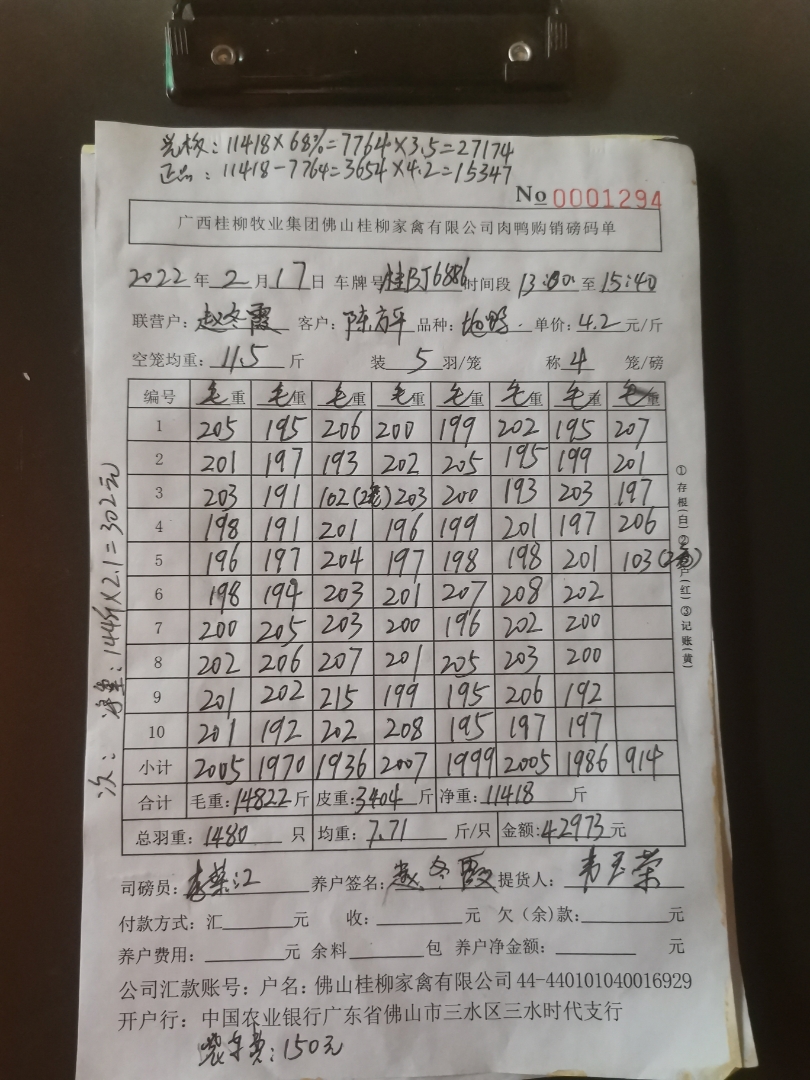 光板：11418×68%=7764×3.5=27174
正品：11418-7764=3654×4.2=15347
No 0001294
广西桂柳牧业集团佛山桂柳家禽有限公司肉鸭购销磅码单
2022年2月17日 车牌号桂BJ6886时间段13:00至15:40
联营户：赵冬霞 客户：陈方平 品种： 单价：4.2元/斤
空笼均重：11.5斤 装5羽/笼 称4笼/磅
编号 毛重 毛重 毛重 毛重 毛重 毛重 毛重 毛重
1 205 195 206 200 199 202 195 207
2 201 197 193 202 205 195 199 201
3 203 191 102(2笼) 203 200 193 203 197
4 198 191 201 196 199 201 197 206
5 196 197 204 197 198 198 201 103(2笼)
6 198 194 203 201 207 208 202
7 200 205 203 200 196 202 200
8 202 206 207 201 205 203 200
9 201 202 215 199 195 206 192
10 201 192 202 208 195 197 197
小计 2005 1970 1936 2007 1999 2005 1986 914
合计 毛重：14822斤 皮重：3404斤 净重：11418斤
总羽重：1480只 均重：7.71斤/只 金额：42973元
司磅员：李荣江 养户签名：赵冬霞 提货人：韦玉荣
付款方式：汇 元 收： 元 欠（余）款： 元
养户费用： 元 余料 包 养户净金额： 元
公司汇款账号：户名：佛山桂柳家禽有限公司44-440101040016929
开户行：中国农业银行广东省佛山市三水区三水时代支行
装车费：150元
次：净重：144斤×2.1=302元
①存根(白)② 户(红)③记账(黄)